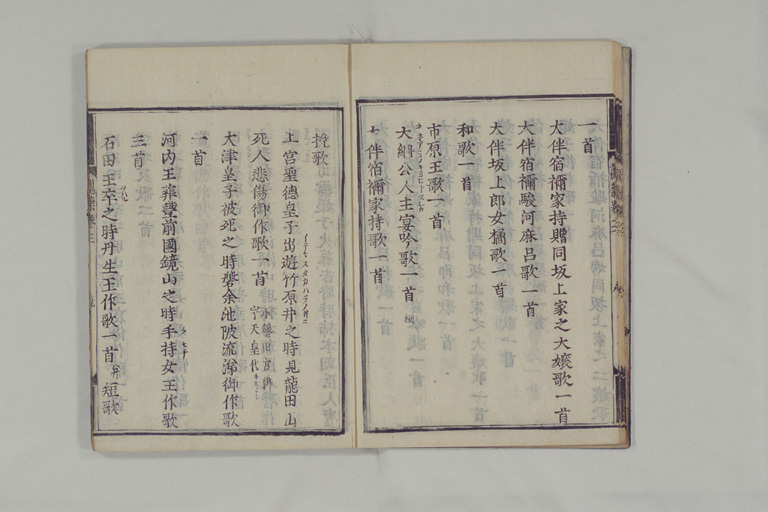 一首
大伴宿禰家持贈同坂上家之大嬢歌一首
大伴宿禰駿河麻呂歌一首
大伴坂上郎女橘歌一首
和歌一首
市原王歌一首
大網公人主宴吟歌一首
大伴宿禰家持歌一首
挽歌
上宮聖德皇子出遊竹原井之時見龍田山
死人悲傷御作歌一首 小墾田宮御宇天皇代
大津皇子被死之時磐余池陂流涕御作歌
一首
河内王葬豐前國鏡山之時手持女王作歌
三首
石田王卒之時丹生王作歌一首 并短歌